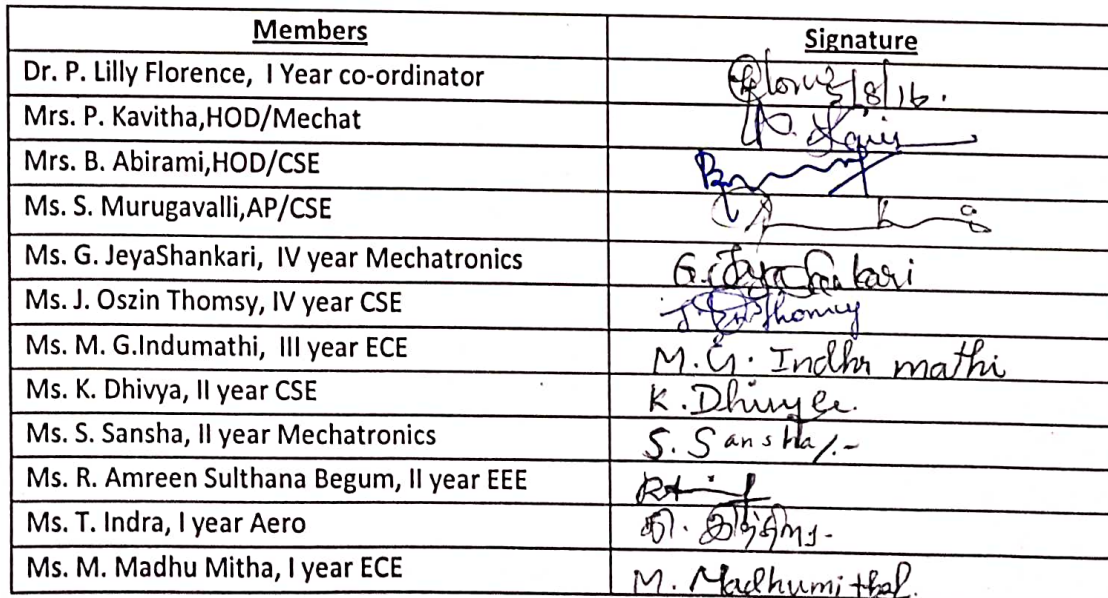 Members Signature
Dr. P. Lilly Florence, I Year co-ordinator 5/8/16.
Mrs. P. Kavitha,HOD/Mechat
Mrs. B. Abirami,HOD/CSE
Ms. S. Murugavalli,AP/CSE
Ms. G. JeyaShankari, IV year Mechatronics
Ms. J. Oszin Thomsy, IV year CSE
Ms. M. G.Indumathi, III year ECE M. G. Indhu mathi
Ms. K. Dhivya, II year CSE K. Dhivya.
Ms. S. Sansha, II year Mechatronics S. Sansha/.-
Ms. R. Amreen Sulthana Begum, II year EEE
Ms. T. Indra, I year Aero
Ms. M. Madhu Mitha, I year ECE M. Madhumitha.